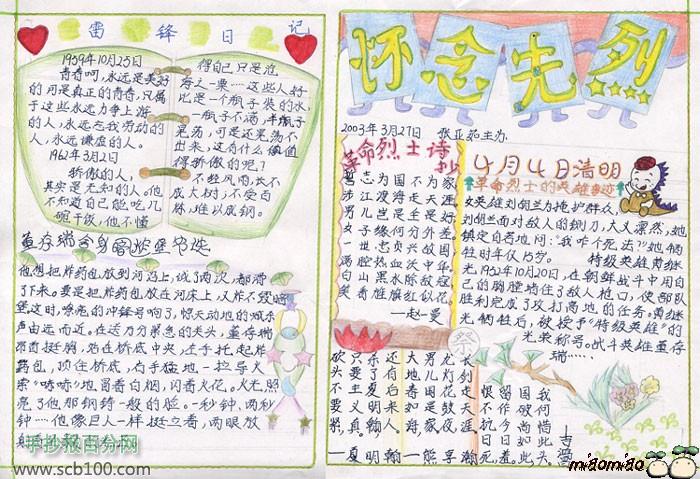 雷锋日记
1959年10月25日
青春呵,永远是美好
的,可是真正的青春,只属
于这些永远力争上游
的人,永远忘我劳动的
人,永远谦虚的人。
1962年3月2日
骄傲的人,
其实是无知的人。他
不知道自己能吃几
碗干饭,他不懂
得自己只是沧
海之一粟……这些人好
比是一个瓶子装的水,
一瓶子不满,半瓶子
晃荡,可是还晃荡不
出来,这有什么值得
骄傲的呢?
不经风雨,长不
成大树,不受百
炼,难以成钢。
董存瑞舍身
他想把炸药包放到河沿上,试了两次,都滑
了下来。要是把炸药包放在河床上,又炸不毁暗
堡。这时,嘹亮的冲锋号响了,惊天动地的喊杀
声由远而近。在这万分紧急的关头,董存瑞
昂首挺胸,站在桥底中央,左手托起炸
药包,顶住桥底,右手猛地一拉导火
索"哧哧"地冒着白烟,闪着火花。火光照
亮了他那钢铸一般的脸。一秒钟,两秒
钟……他像巨人一样挺立着,两眼放
手抄报百分网
www.scb100.com
怀念先烈
2003年3月27日
革命烈士诗抄
誓志为国不为家
涉江渡海走天涯
男儿岂是全是好
女子缘何分外差
一世忠贞兴故国
满腔热血沃中华
白山黑水除敌寇
笑看旌旗红似花
—赵一曼
4月4日清明
革命烈士的英雄事迹
女英雄刘胡兰为掩护群众,
刘胡兰面对敌人的铡刀,大义凛然,她
镇定自若地问:"我咋个死法?"她牺
牲时年仅15岁。
特级英雄黄继
光,1952年10月20日,在朝鲜战斗中用自
己的胸膛堵住了敌人枪口,使部队
胜利完成了攻打高地的任务。黄继
光牺牲后,被授予"特级英雄"的
光荣称号。战斗英雄董存
瑞……
祭
砍头不要紧
只要主义真
还有后来人
—夏明翰
大地春如海
男儿国是家
龙灯花鼓夜
长剑走天涯
—熊亨瀚
恨不抗日死
留作今日羞
国破尚如此
我何惜此头
miaomiao